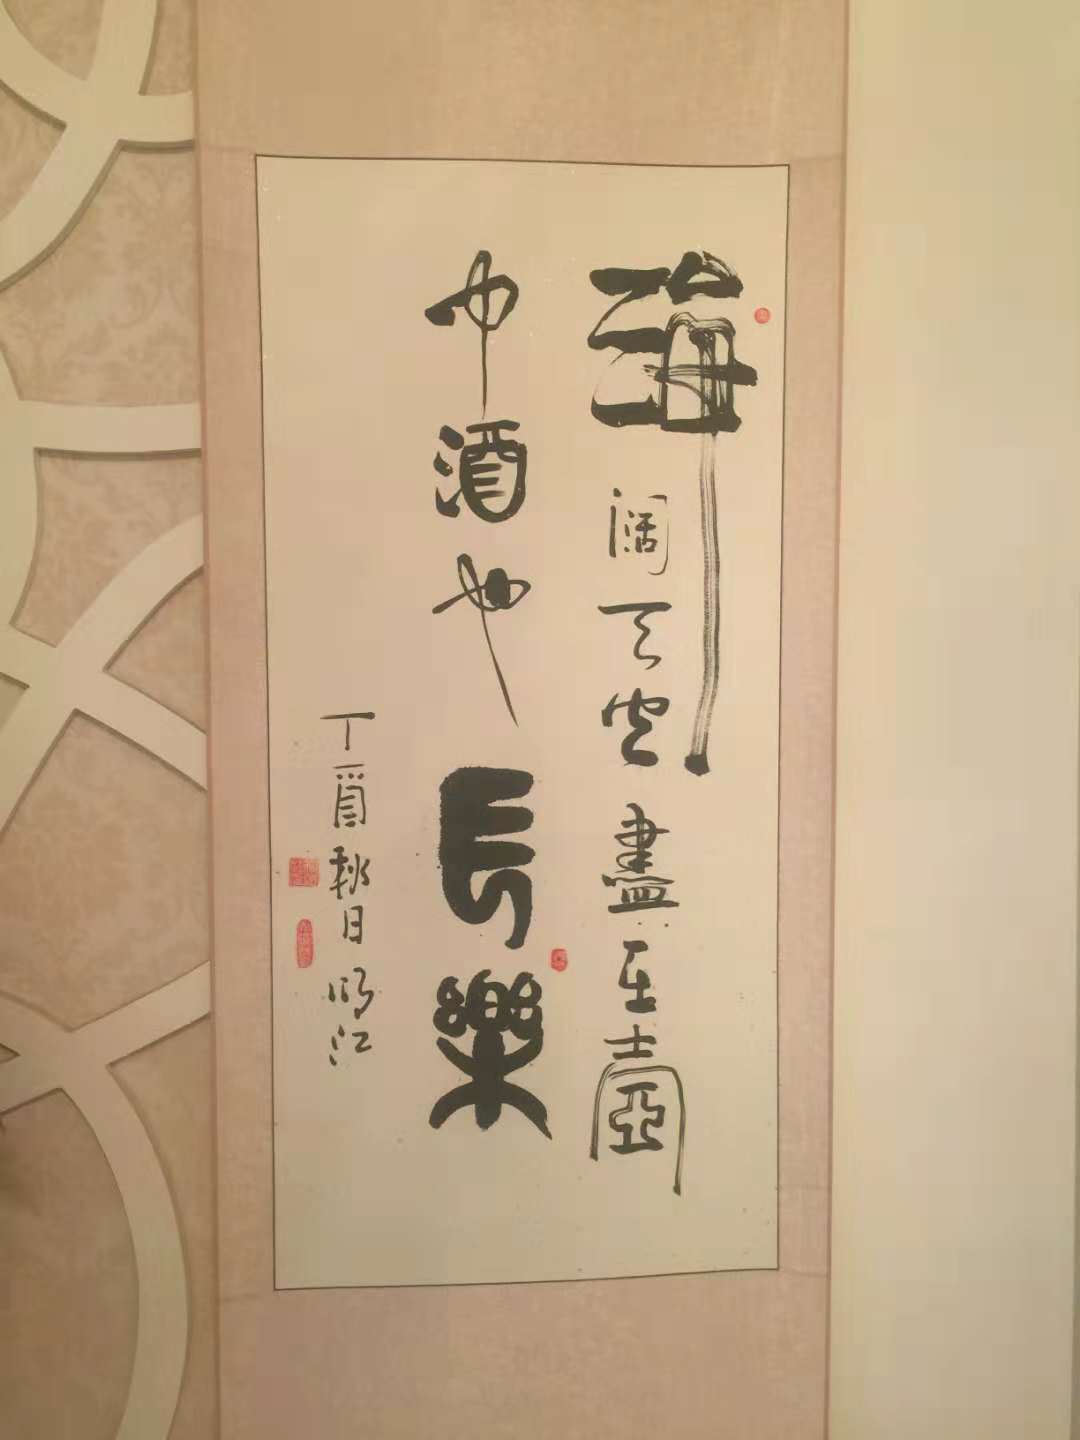 海阔天空盡在壺
中酒也長樂
丁酉秋日明江